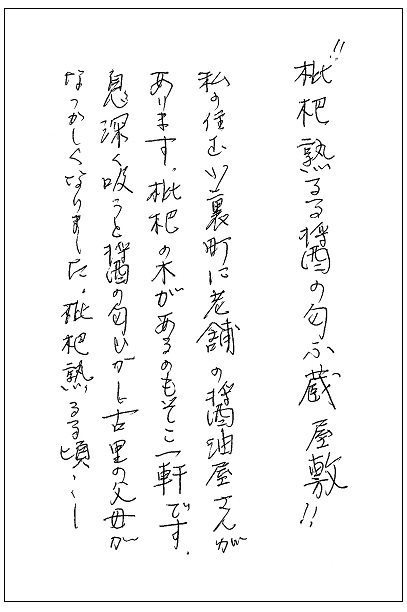 "枇杷熟るる醤の匂ふ蔵屋敷!!
私の住む裏町に老舗の醤油屋さんが
あります。枇杷の木があるのもそこ一軒です。
息深く吸うと醤の匂ひがし古里の父母が
なつかしくなりました。枇杷熟るる頃、、